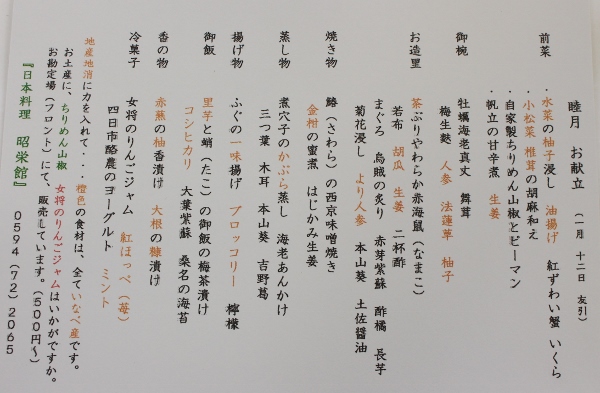 睦月 お献立 (一月 十二日 友引)
前菜 ・水菜の柚子浸し 油揚げ 紅ずわい蟹 いくら
・小松菜 椎茸の胡麻和え
・自家製ちりめん山椒とピーマン
・帆立の甘辛煮 生姜
御椀 牡蠣海老真丈 舞茸
梅生麩 人参 法蓮草 柚子
お造里 茶ぶりやわらか赤海鼠(なまこ)
若布 胡瓜 生姜 二杯酢
まぐろ 烏賊の炙り 赤芽紫蘇 酢橘 長芋
菊花浸し より人参 本山葵 土佐醤油
焼き物 鰆(さわら)の西京味噌焼き
金柑の蜜煮 はじかみ生姜
蒸し物 煮穴子のかぶら蒸し 海老あんかけ
三つ葉 木耳 本山葵 吉野葛
揚げ物 ふぐの一味揚げ ブロッコリー 檸檬
御飯 里芋と蛸(たこ)の御飯の梅茶漬け
コシヒカリ 大葉紫蘇 桑名の海苔
香の物 赤蕪の柚香漬け 大根の糠漬け
冷菓子 女将のりんごジャム 紅ほっぺ(苺)
四日市酪農のヨーグルト ミント
地産地消に力を入れて・・・橙色の食材は、全ていなべ産です。
お土産に、ちりめん山椒 女将のりんごジャムはいかがですか。
お勘定場(フロント)にて、販売しています。(500円~)
『日本料理 昭栄館』 0594(72)2065